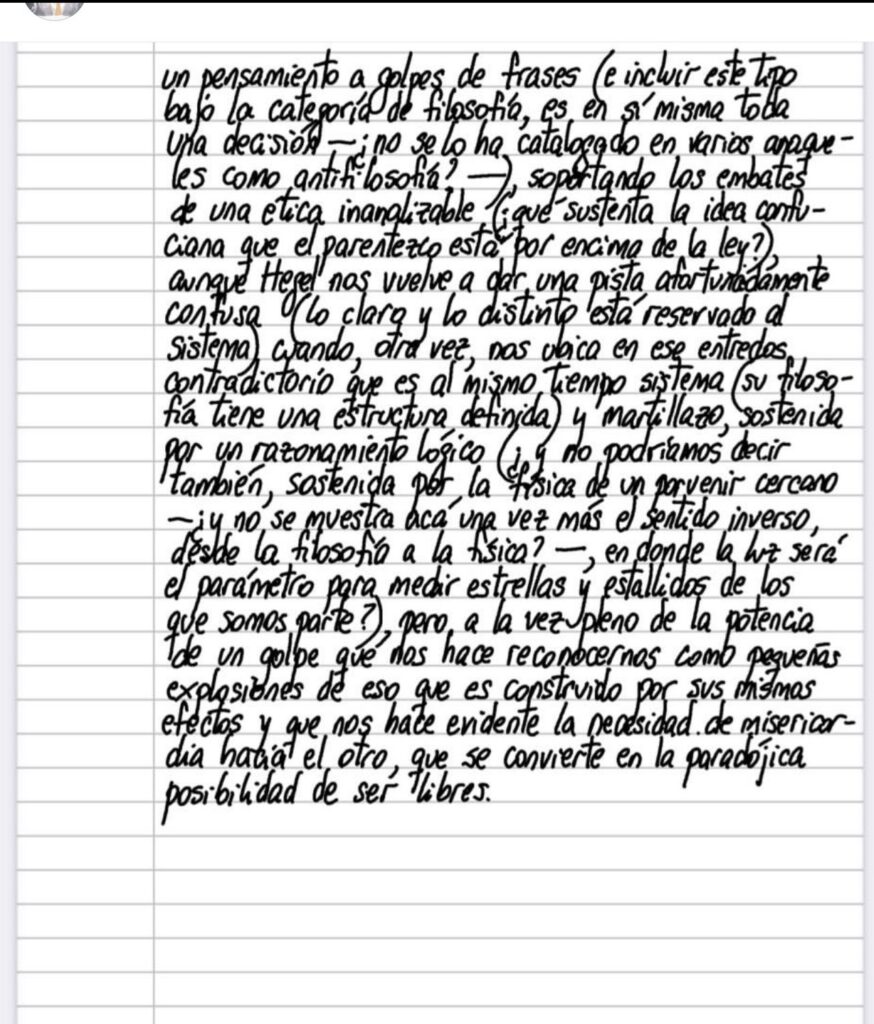 un pensamiento a golpes de frases (e incluir este tipo
bajo la categoría de filosofía, es en sí misma toda
una decisión —¿no se lo ha catalogado en varios anaque-
les como antifilosofía? —), soportando los embates
de una ética inanalizable (¿qué sustenta la idea confu-
ciana que el parentezco está por encima de la ley?),
aunque Hegel nos vuelve a dar una pista afortunadamente
confusa (lo claro y lo distinto está reservado al
sistema) cuando, otra vez, nos ubica en ese entredos
contradictorio que es al mismo tiempo sistema (su filoso-
fía tiene una estructura definida) y martillazo, sostenida
por un razonamiento lógico (¿y no podríamos decir
también, sostenida por la física de un porvenir cercano
—¿y no se muestra acá una vez más el sentido inverso,
desde la filosofía a la física? —, en donde la luz será
el parámetro para medir estrellas y estallidos de los
que somos parte?), pero, a la vez pleno de la potencia
de un golpe que nos hace reconocernos como pequeñas
explosiones de eso que es construido por sus mismos
efectos y que nos hace evidente la necesidad de misericor-
dia hacia el otro, que se convierte en la paradójica
posibilidad de ser libres.